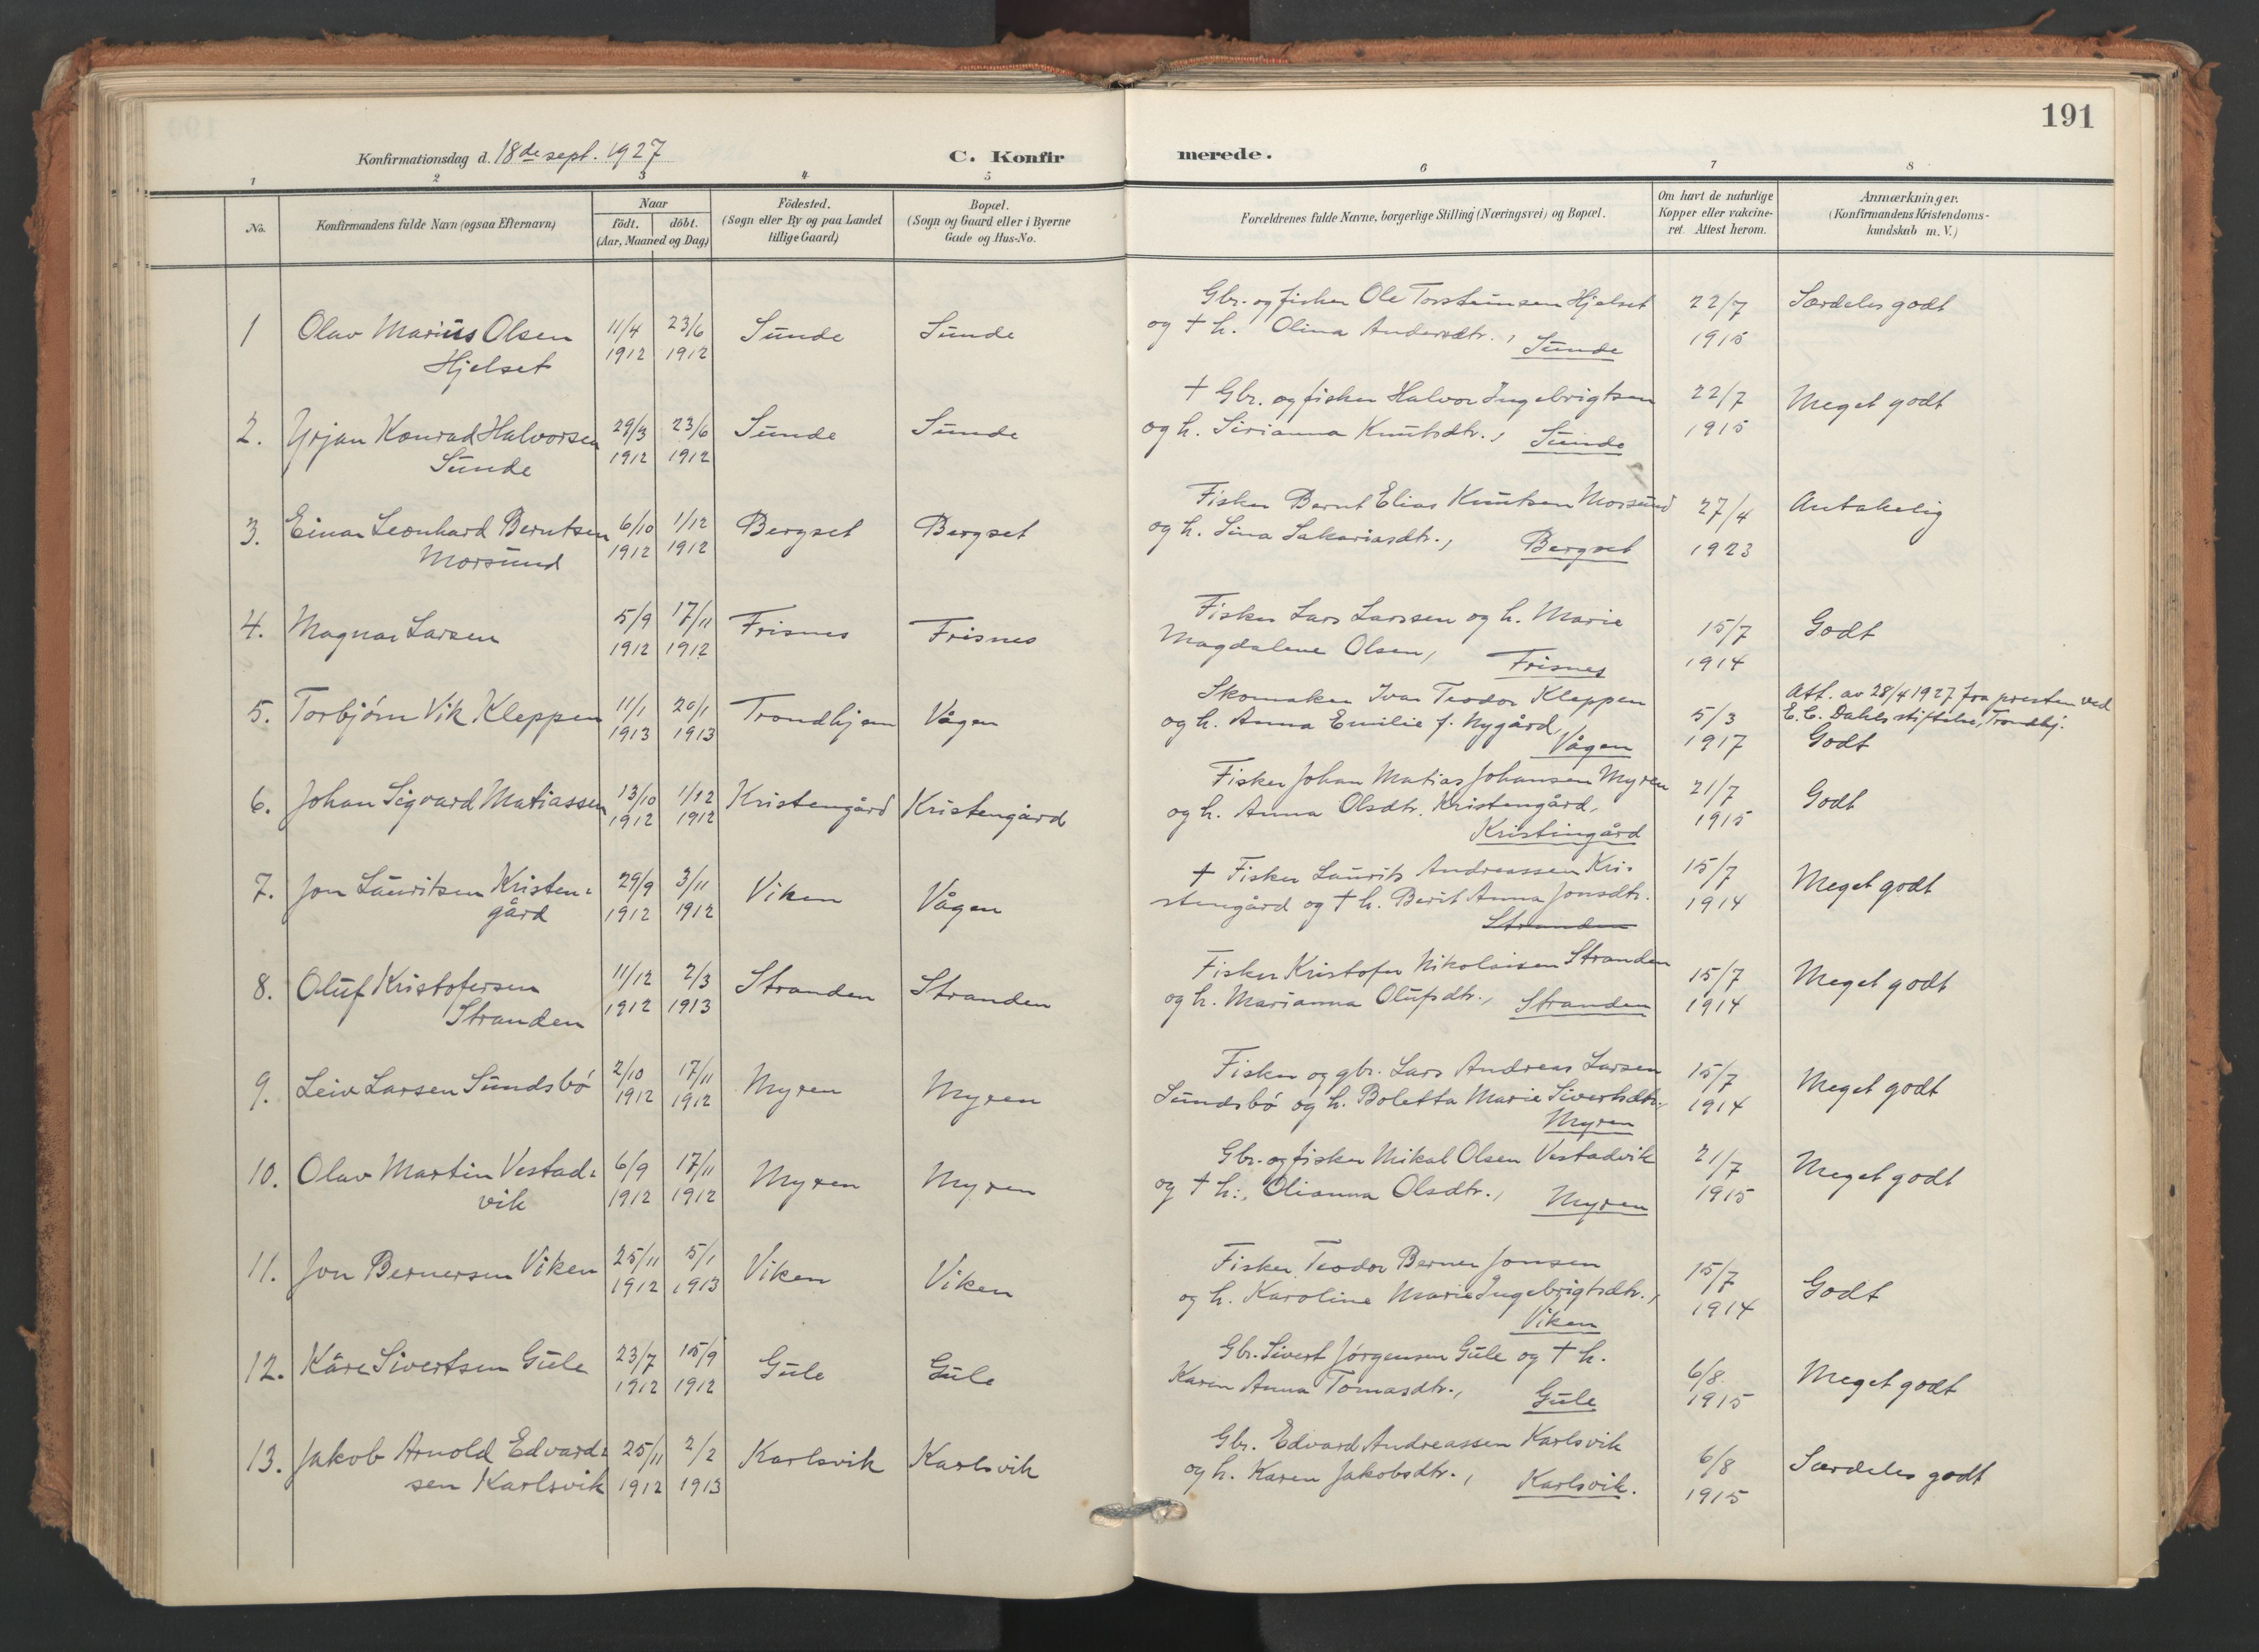 191
Konfirmationsdag d. 18de sept. 1927
C. Konfirmerede.
1 2 3 4 5 6 7 8
No.
Konfirmandens fulde Navn (ogsaa Efternavn)
Naar
födt. döbt.
(Aar, Maaned og Dag)
Födested.
(Sogn eller By og paa Landet
tillige Gaard)
Bopæl.
(Sogn og Gaard eller i Byerne
Gade og Hus-No.
Forældrenes fulde Navne, borgerlige Stilling (Næringsvei) og Bopæl.
Om havt de naturlige
Kopper eller vakcine-
ret. Attest herom.
Anmærkninger.
(Konfirmandens Kristendoms-
kundskab m. V.)
1 Olav Marius Olsen 11/4 23/6 Sunde Sunde
Hjelset 1912 1912
Gbr. og fisker Ole Torsteinsen Hjelset 22/7 Særdeles godt
og † h. Olina Andersdtr., Sunde 1915
2. Yrjan Konrad Halvorsen 29/3 23/6 Sunde Sunde
Sunde 1912 1912
† Gbr. og fisker Halvor Ingebrigtsen 22/7 Meget godt
og h. Sirianna Knutsdtr., Sunde 1915
3. Einar Leonhard Berntsen 6/10 1/12 Bergset Bergset
Morsund 1912 1912
Fisker Bernt Elias Knutsen Morsund 27/4 Antakelig
og h. Lina Sakariasdtr., Bergset 1923
4. Magnar Larsen 5/9 17/11 Frisnes Frisnes
1912 1912
Fisker Lars Larssen og h. Marie 15/7 Godt
Magdalene Olsen, Frisnes 1914
5. Torbjörn Vik Kleppen 11/1 20/1 Trondhjem Vågen
1913 1913
Skomaker Ivar Teodor Kleppen 5/3 Att. av 28/4 1927 fra presten ved
og h. Anna Emilie f. Nygård, 1917 E. C. Dahls stiftelse, Trondhj.
Vågen Godt
6. Johan Sigvard Matiassen 13/10 1/12 Kristengård Kristengård
1912 1912
Fisker Johan Matias Johansen Myren 21/7 Godt
og h. Anna Olsdtr. Kristengård, 1915
Kristingård
7. Jon Lauritsen Kristen- 29/9 3/11 Viken Vågen
gård 1912 1912
† Fisker Laurits Andreassen Kri- 15/7 Meget godt
stengård og † h. Berit Anna Jonsdtr. 1914
Stranden
8. Oluf Kristofersen 11/12 2/3 Stranden Stranden
Stranden 1912 1913
Fisker Kristofer Nikolaisen Stranden 15/7 Meget godt
og h. Marianna Olufsdtr., Stranden 1914
9. Leiv Larsen Sundsbö 2/10 17/11 Myren Myren
1912 1912
Fisker og gbr. Lars Andreas Larsen 15/7 Meget godt
Sundsbö og h. Boletta Marie Sivertsdtr., 1914
Myren
10. Olav Martin Vestad- 6/9 17/11 Myren Myren
vik 1912 1912
Gbr. og fisker Mikal Olsen Vestadvik 21/7 Meget godt
og † h., Olianna Olsdtr., Myren 1915
11. Jon Bernersen Viken 25/11 5/1 Viken Viken
1912 1913
Fisker Teodor Berner Jonsen 15/7 Godt
og h. Karoline Marie Ingebrigtsdtr., 1914
Viken
12. Kåre Sivertsen Gule 23/7 15/9 Gule Gule
1912 1912
Gbr. Sivert Jörgensen Gule og † h. 6/8 Meget godt
Karen Anna Tomasdtr., Gule 1915
13. Jakob Arnold Edvard- 25/11 2/2 Karlsvik Karlsvik
sen Karlsvik 1912 1913
Gbr. Edvard Andreassen Karlsvik 6/8 Særdeles godt
og h. Karen Jakobsdtr., Karlsvik. 1915